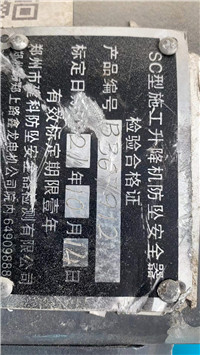 SC型施工升降机防坠安全器
检验合格证
产品编号 B36
标定日期 年 月 日
有效标定期限壹年
郑州市 科防坠安全器检测有限公司
郑上路鑫龙电机公司院内64909888